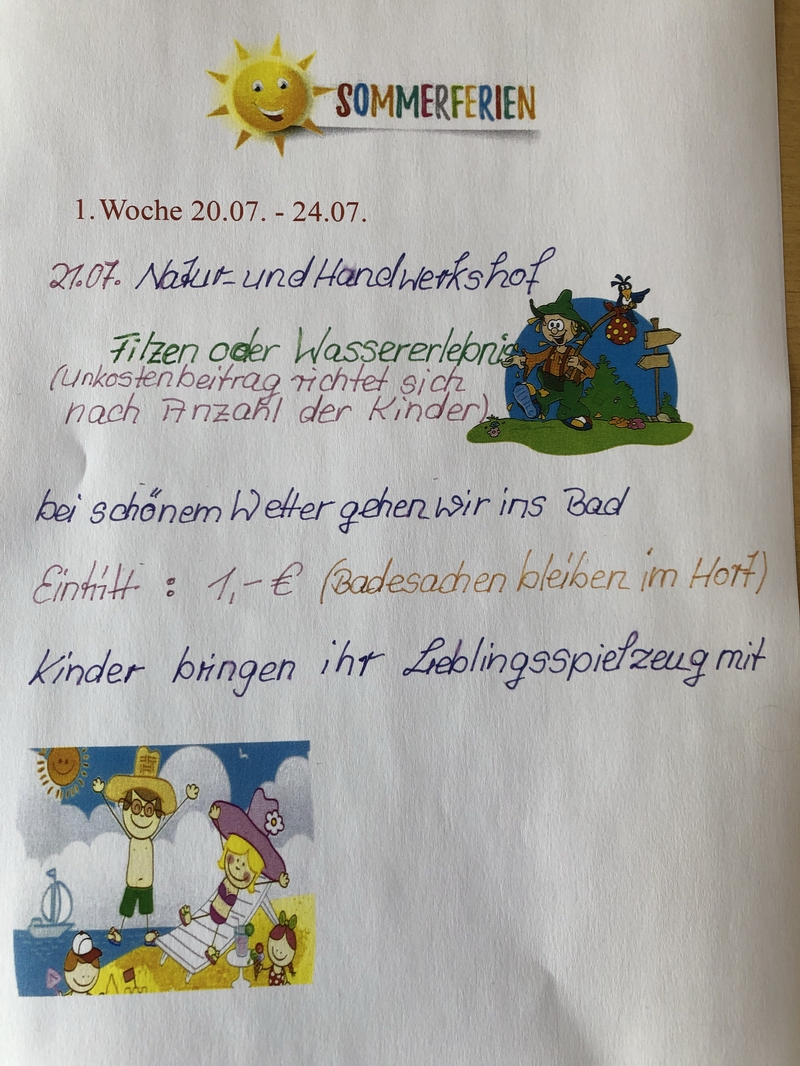 SOMMERFERIEN
1. Woche 20.07. - 24.07.
21.07. Natur- und Handwerkshof
Filzen oder Wassererlebnis
(Unkostenbeitrag richtet sich
nach Anzahl der Kinder)
bei schönem Wetter gehen wir ins Bad
Eintritt : 1,- € (Badesachen bleiben im Hort)
Kinder bringen ihr Lieblingsspielzeug mit